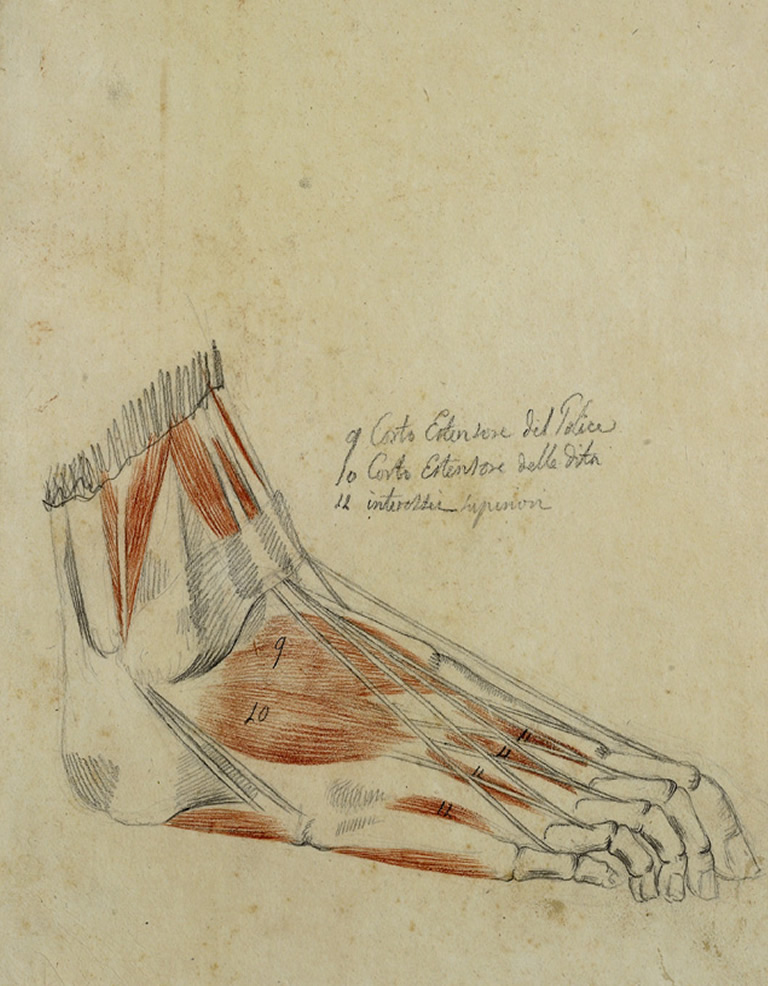 9 Corto Estensore del Police
10 Corto Estensore delle dita
11 interossei superiori
9
10
11
11
11
11